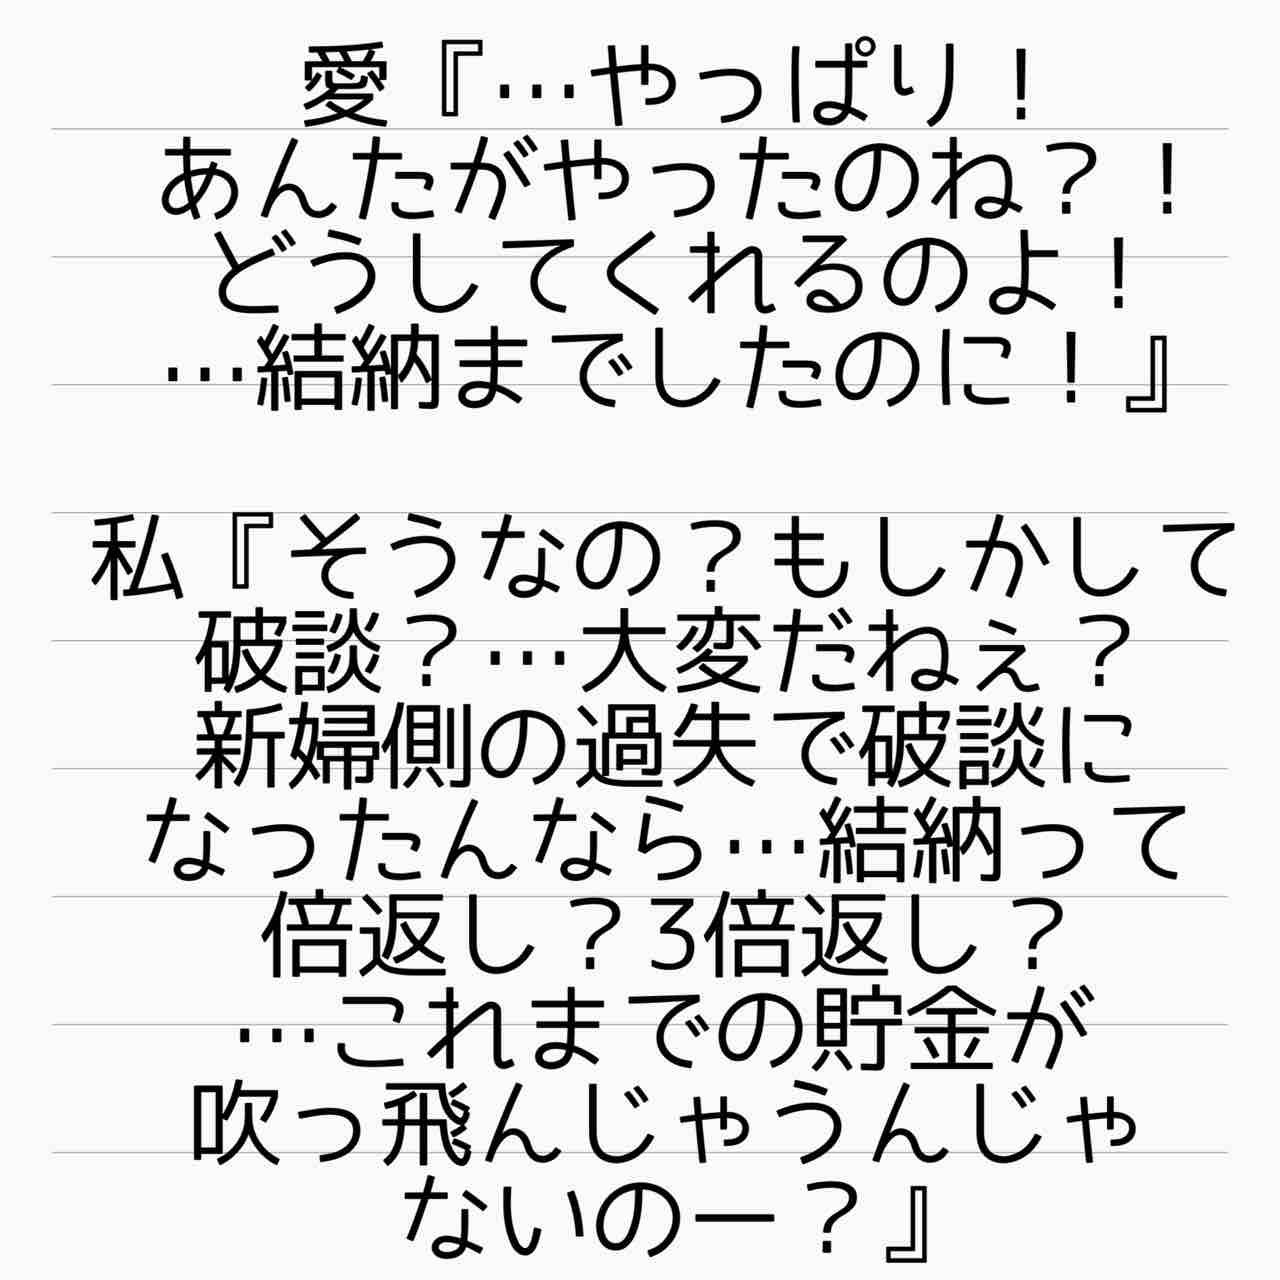 愛『…やっぱり！
あんたがやったのね？！
どうしてくれるのよ！
…結納までしたのに！』
私『そうなの？もしかして
破談？…大変だねぇ？
新婦側の過失で破談に
なったんなら…結納って
倍返し？3倍返し？
…これまでの貯金が
吹っ飛んじゃうんじゃ
ないのー？』